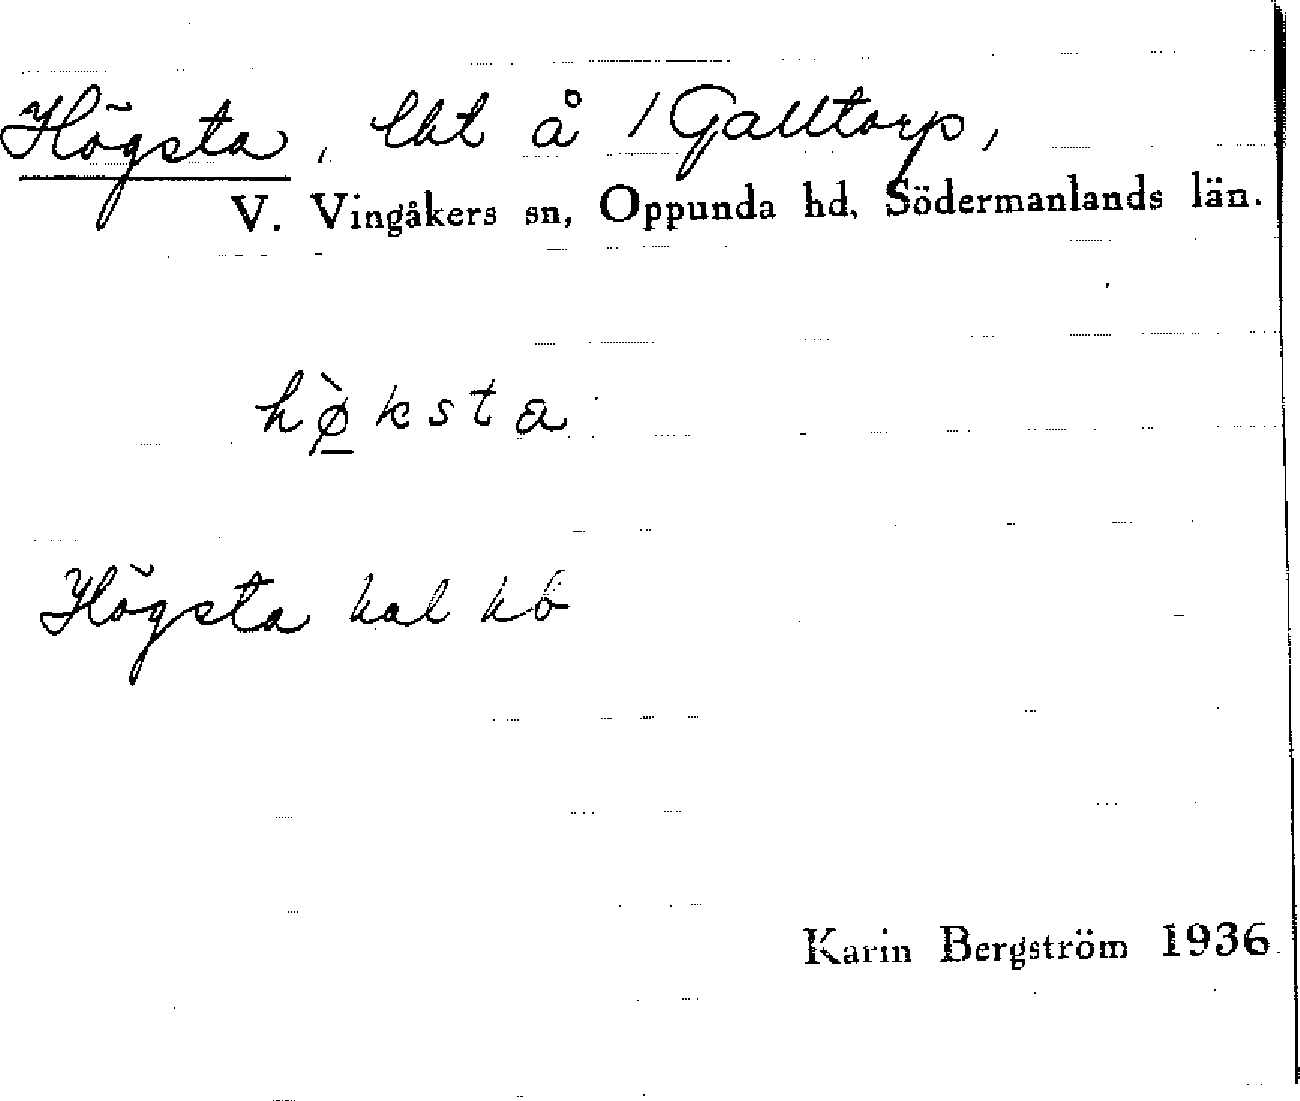 Högsta, lht å 1 Galltorp,
V. Vingåkers sn, Oppunda hd, Södermanlands län.
hø̀ksta
Högsta
Karin Bergström 1936